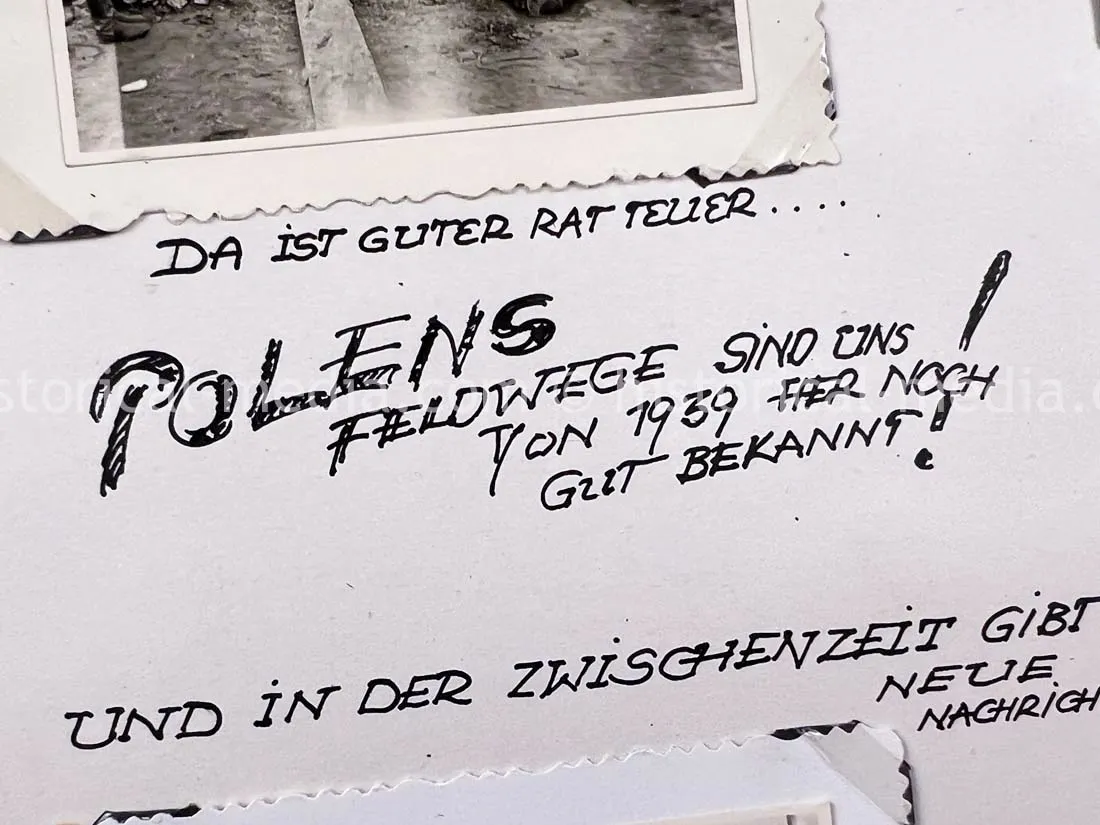 DA IST GUTER RAT TEUER....
POLENS
FELDWEGE SIND UNS
VON 1939 HER NOCH
GUT BEKANNT!
UND IN DER ZWISCHENZEIT GIBT
NEUE
NACHRICH
historical-media.com © historical-media.c